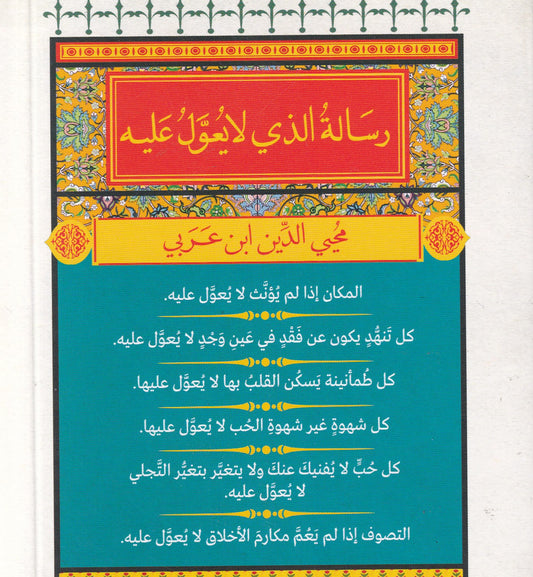 رسالةُ الذي لا يُعوَّلُ عَليه
محيي الدِّين ابن عَربي
المكان إذا لم يُؤنَّث لا يُعوَّل عليه.
كل تَنهُّدٍ يكون عن فَقْدٍ في عَينِ وَجْدٍ لا يُعوَّل عليه.
كل طُمأنينة يَسكُن القلبُ بها لا يُعوَّل عليها.
كل شهوةٍ غير شهوةِ الحُب لا يُعوَّل عليها.
كل حُبٍّ لا يُفنيكَ عنكَ ولا يتغيَّر بتغيُّر التَّجلي
لا يُعوَّل عليه.
التصوف إذا لم يَعُمَّ مكارمَ الأخلاق لا يُعوَّل عليه.